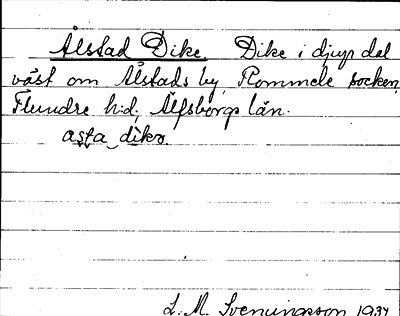 Ålstad Dike. Dike i djup dal
väst om Ålstads by, Rommele socken,
Flundre h:d, Älfsborgs län.
asta dike.
L. M. Svenungsson 1934